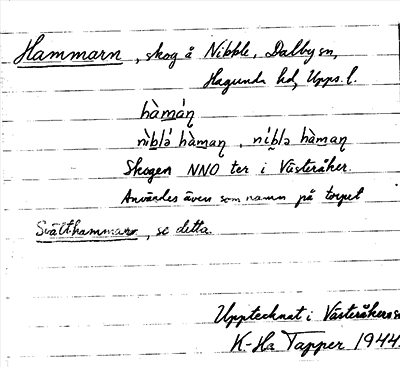 Hammarn, skog å Nibble, Dalby sn,
Hagunda hd, Upps. l.
hàmáṇ
nìblə́ hàmaṇ, níblə hàmaṇ
Skogen NNO ter i Västeråker.
Användes även som namn på torpet
Svälthammarn, se detta.
Upptecknat i Västeråkers s
K-Ha Tapper 1944.